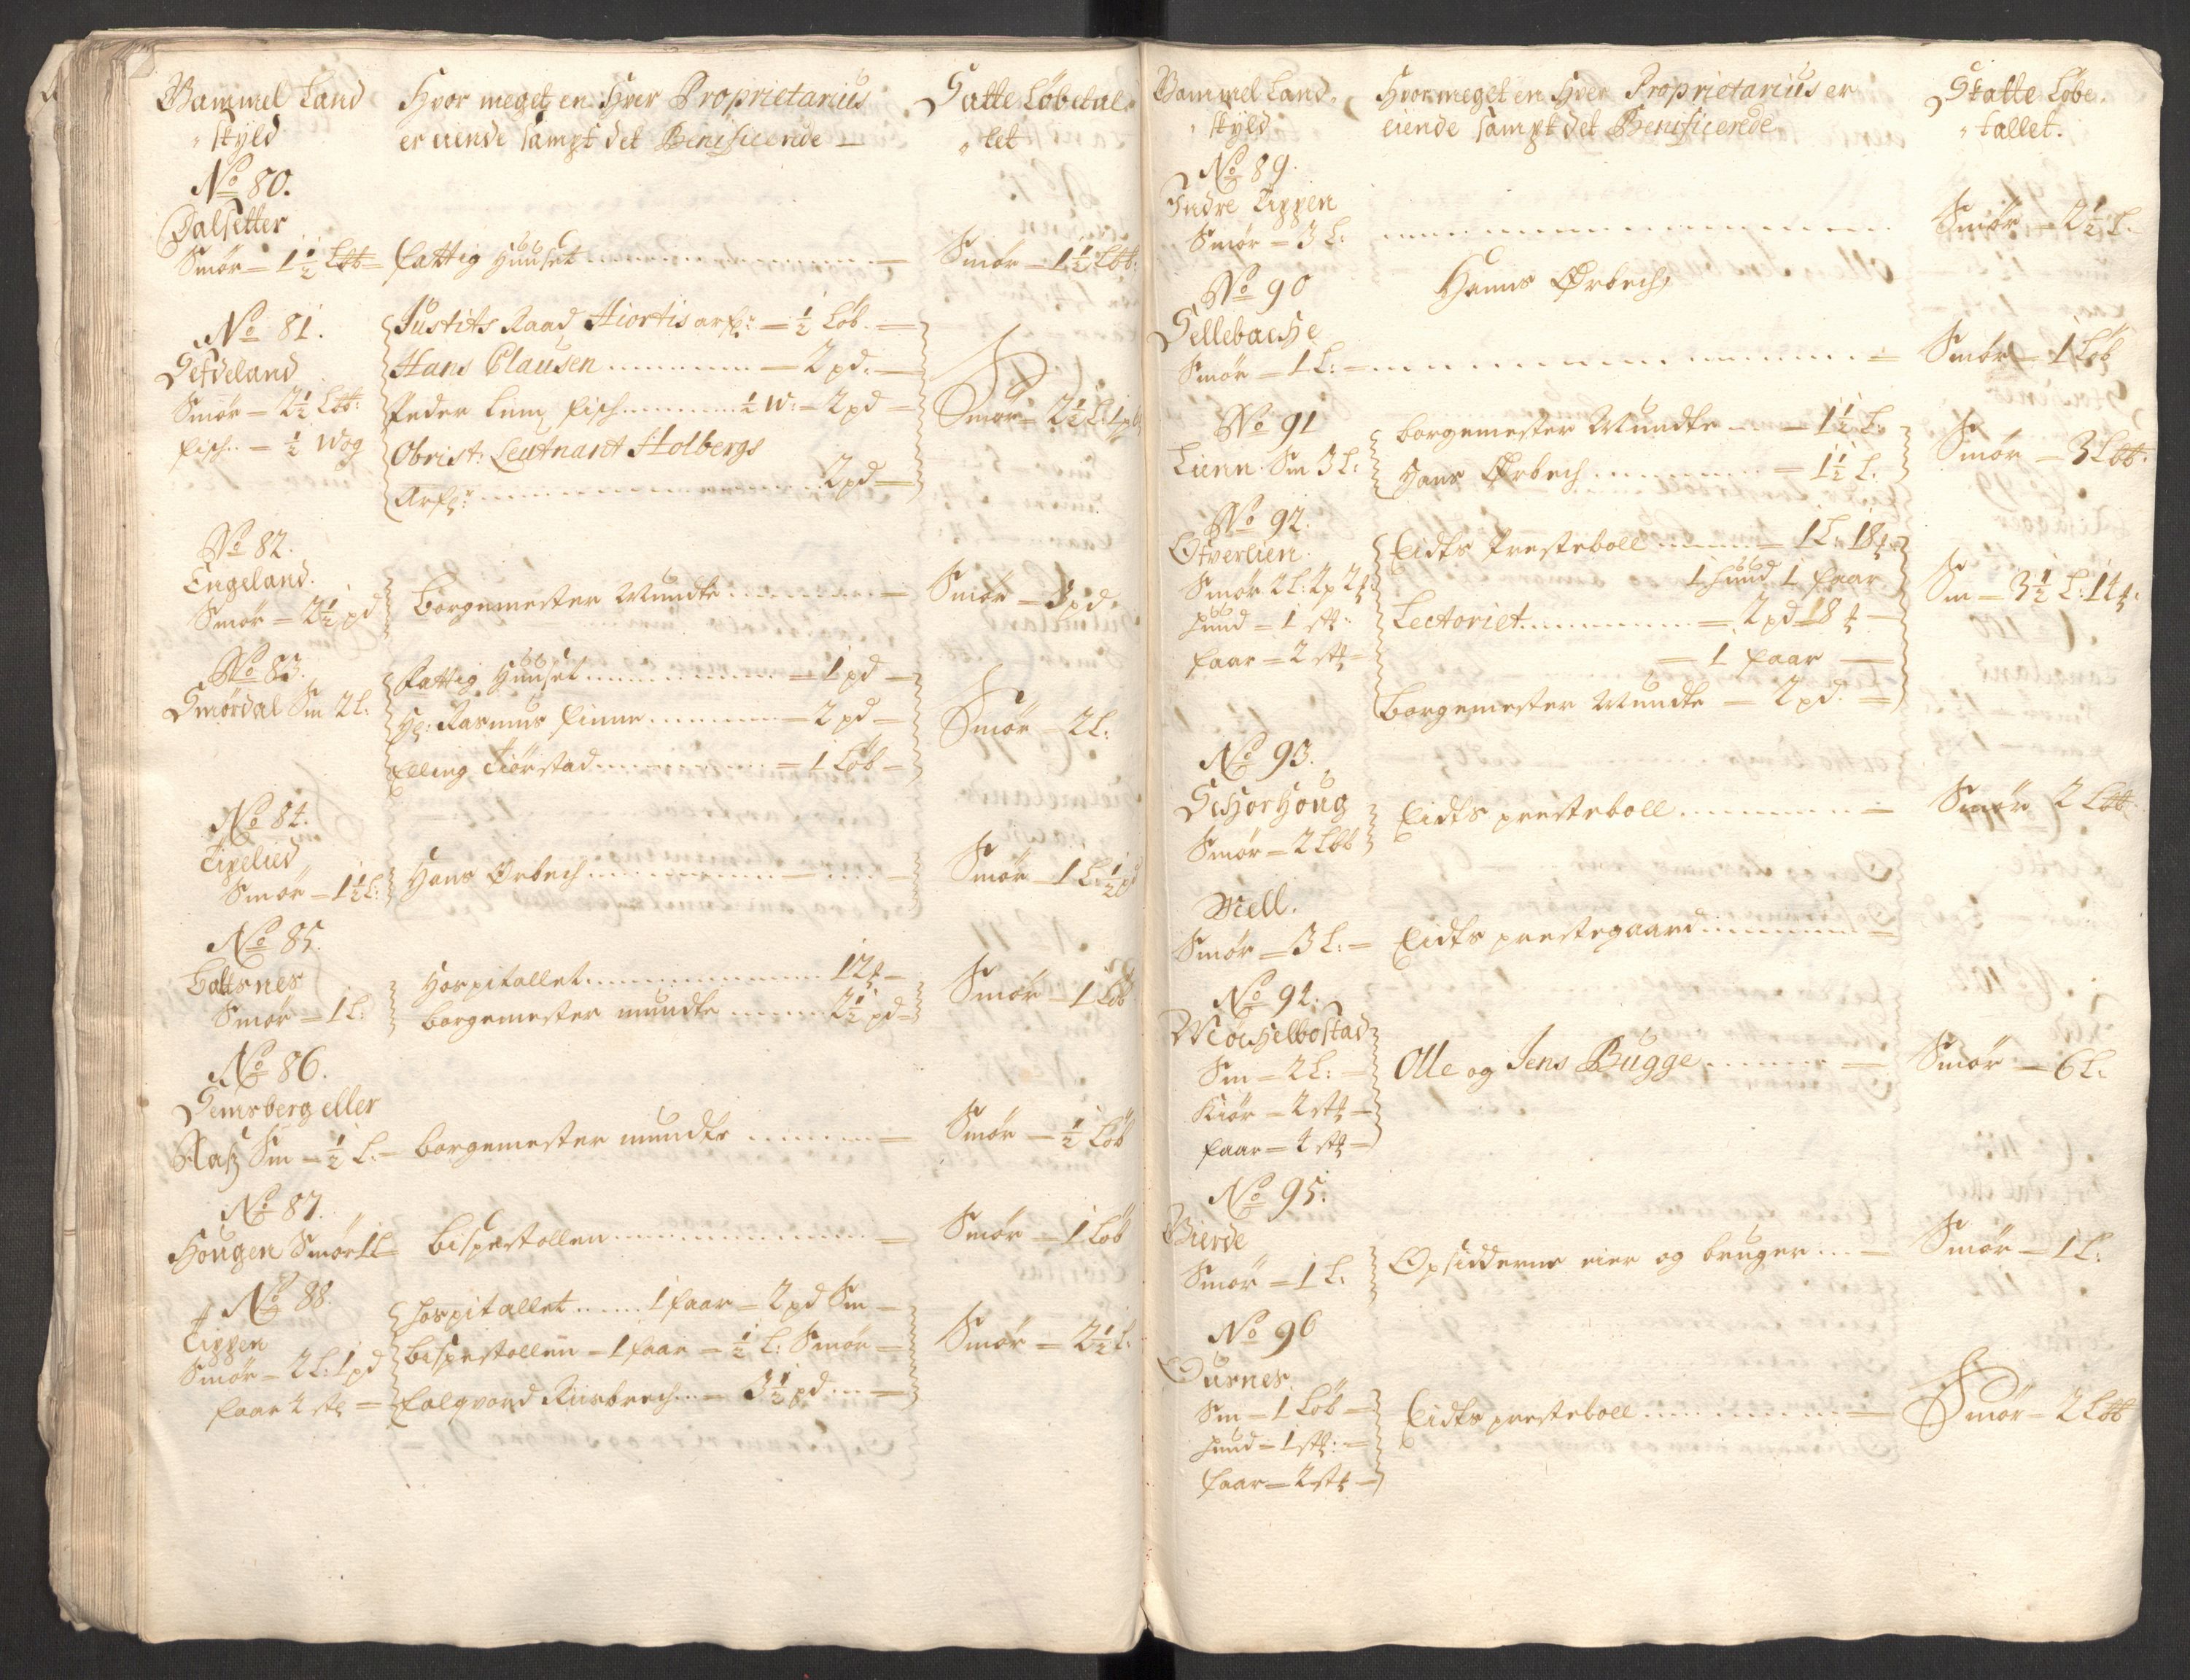 Gammel Land
skyld
Hvor meget en Hver Proprietarius
er eiende sampt det Benificerede
Skatte Løbetal
let
No 80.
Dalsetter
Smør = 1½ Løb = Fattig Huuset
Smør = 1½ Løb:
No 81.
Sefdeland
Smør = 2½ Løb:
fisch = ½ Wog
Justits Raad Hiortis arf: = ½ Løb.
Hans Clausen = 2 pd.
Peder Lem, fisch ½ W: = 2 pd
Obrist: Leutnant Holbergs
Arf: 2 pd
Smør = 2½ L: 1 pd
No 82.
Engeland.
Smør = 2½ pd
borgemester Mundte
Smør = 3 pd.
No 83.
Smørdal Sm 2 L:
Fattig Huuset = 1 pd
Hr: Rasmus Finne = 2 pd
Elling Tiørstad = 1 Løb
Smør = 2 L:
No 84.
Tipelied
Smør = 1½ L:
Hans Ørbech
Smør = 1 L: ½ pd
No 85.
Smør = 1 L:
Hospitallet 12
borgemester mundte 2½ pd
Smør = 1 Løb
No 86.
Semsberg eller
Sm = ½ L: borgemester mundte
Smør = ½ Løb
No 87.
Hougen Smør 1 L
bispestollen
Smør = 1 Løb
No 88.
Tippen
Smør = 2 L: 1 pd
faar 2 st
Hospitallet 1 faar = 2 pd Sm
bispestollen = 1 faar = ½ L: Smør
3½ pd
Smør = 2½ L:
Gammel Land
skyld
Hvor meget en Hver Proprietarius er
eiende sampt det Benificerede
Skatte Løbe
tallet.
No 89.
Indre Tippen
Smør = 3 L:
Smør = 2½ L.
No 90
Hanns Ørbech
Sellebache
Smør = 1 L:
Smør = 1 Løb
No 91
Lienn. Sm 3 L:
borgemester Mundte = 1½ L:
Hans Ørbech = 1½ L.
Smør = 3 Løb.
No 92.
Ofverlien.
Smør 2 L: 2 p 2
huud = 1 st:
faar = 2 st
Eidts Presteboll = 1 L: 18
1 huud 1 faar
Lectoriet = 2 pd 18
= 1 faar
borgemester Mundte = 2 pd.
Sm = 3½ L: 14
No 93.
Schorhoug
Smør = 2 Løb
Eidts presteboll
Smør 2 Løb
Mell.
Smør = 3 L: = Eidts prestegaard
No 94.
Mochelbostad
Sm = 2 L:
Kiør = 2 st
faar = 4 st
Olle og Jens Bugge
Smør = 6 L:
No 95.
Gierde
Smør = 1 L:
Opsidderne eier og bruger
Smør = 1 L:
No 96
Ournes.
Sm = 1 Løb
huud = 1 st:
faar = 2 st
Eidts presteboll
Smør = 2 Løb